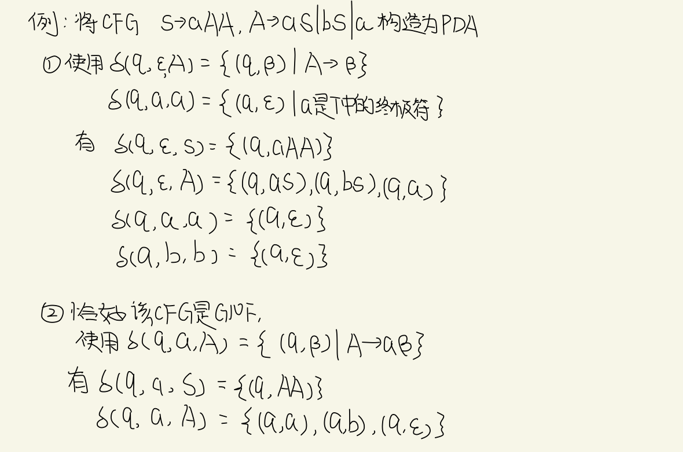 例:将CFG S→aAA, A→aS|bS|a 构造为PDA
①使用 δ(q,ε,A)={(q,β)|A→β}
δ(q,a,a)={(q,ε)|a是T中的终极符}
有 δ(q,ε,S)={(q,aAA)}
δ(q,ε,A)={(q,aS),(q,bS),(q,a)}
δ(q,a,a)={(q,ε)}
δ(q,b,b)={(q,ε)}
②恰好该CFG是GNF,
使用δ(q,a,A)={(q,β)|A→aβ}
有 δ(q,a,S)={(q,AA)}
δ(q,a,A)={(q,a),(q,b),(q,ε)}